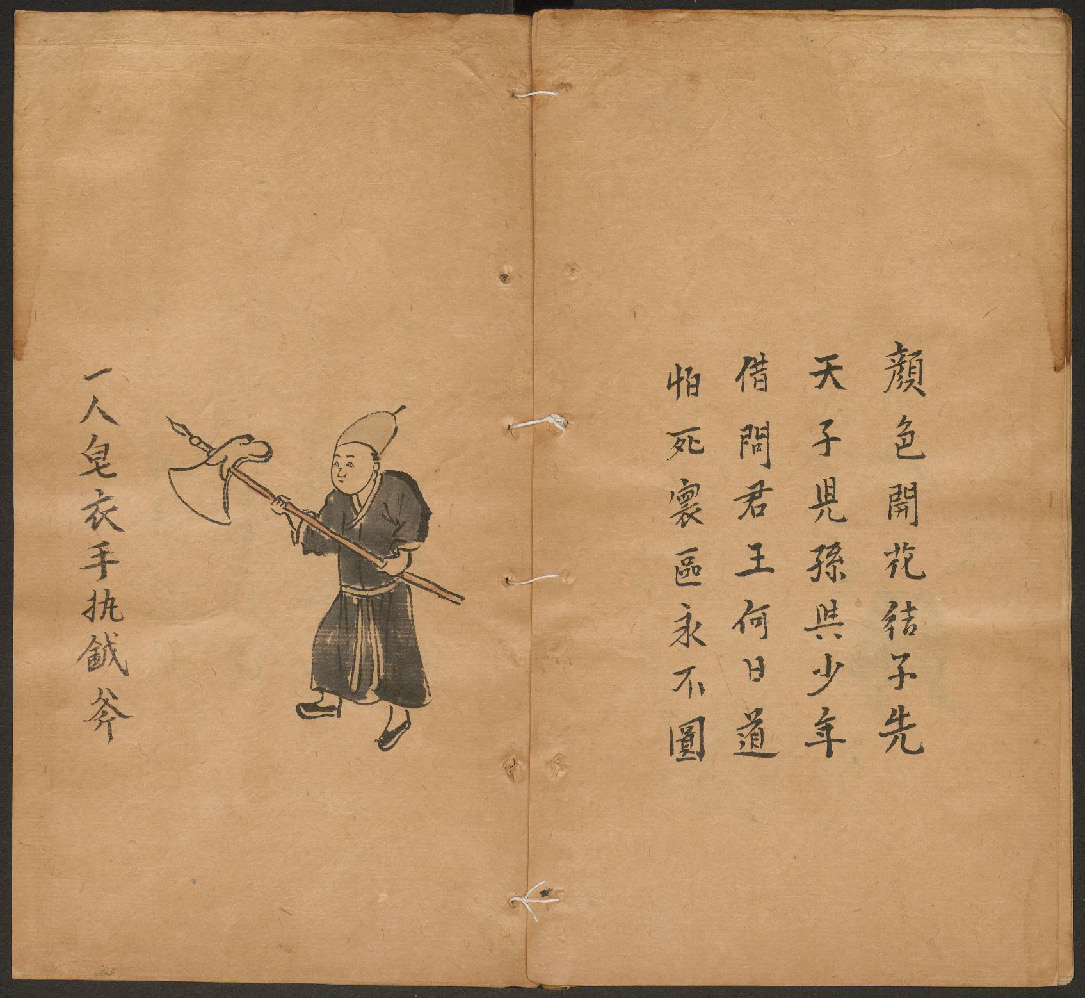 顔色開花結子先
天子児孫与少年
借問君王何日道
怕死寰區永不圓
一人皂衣手执鉞斧